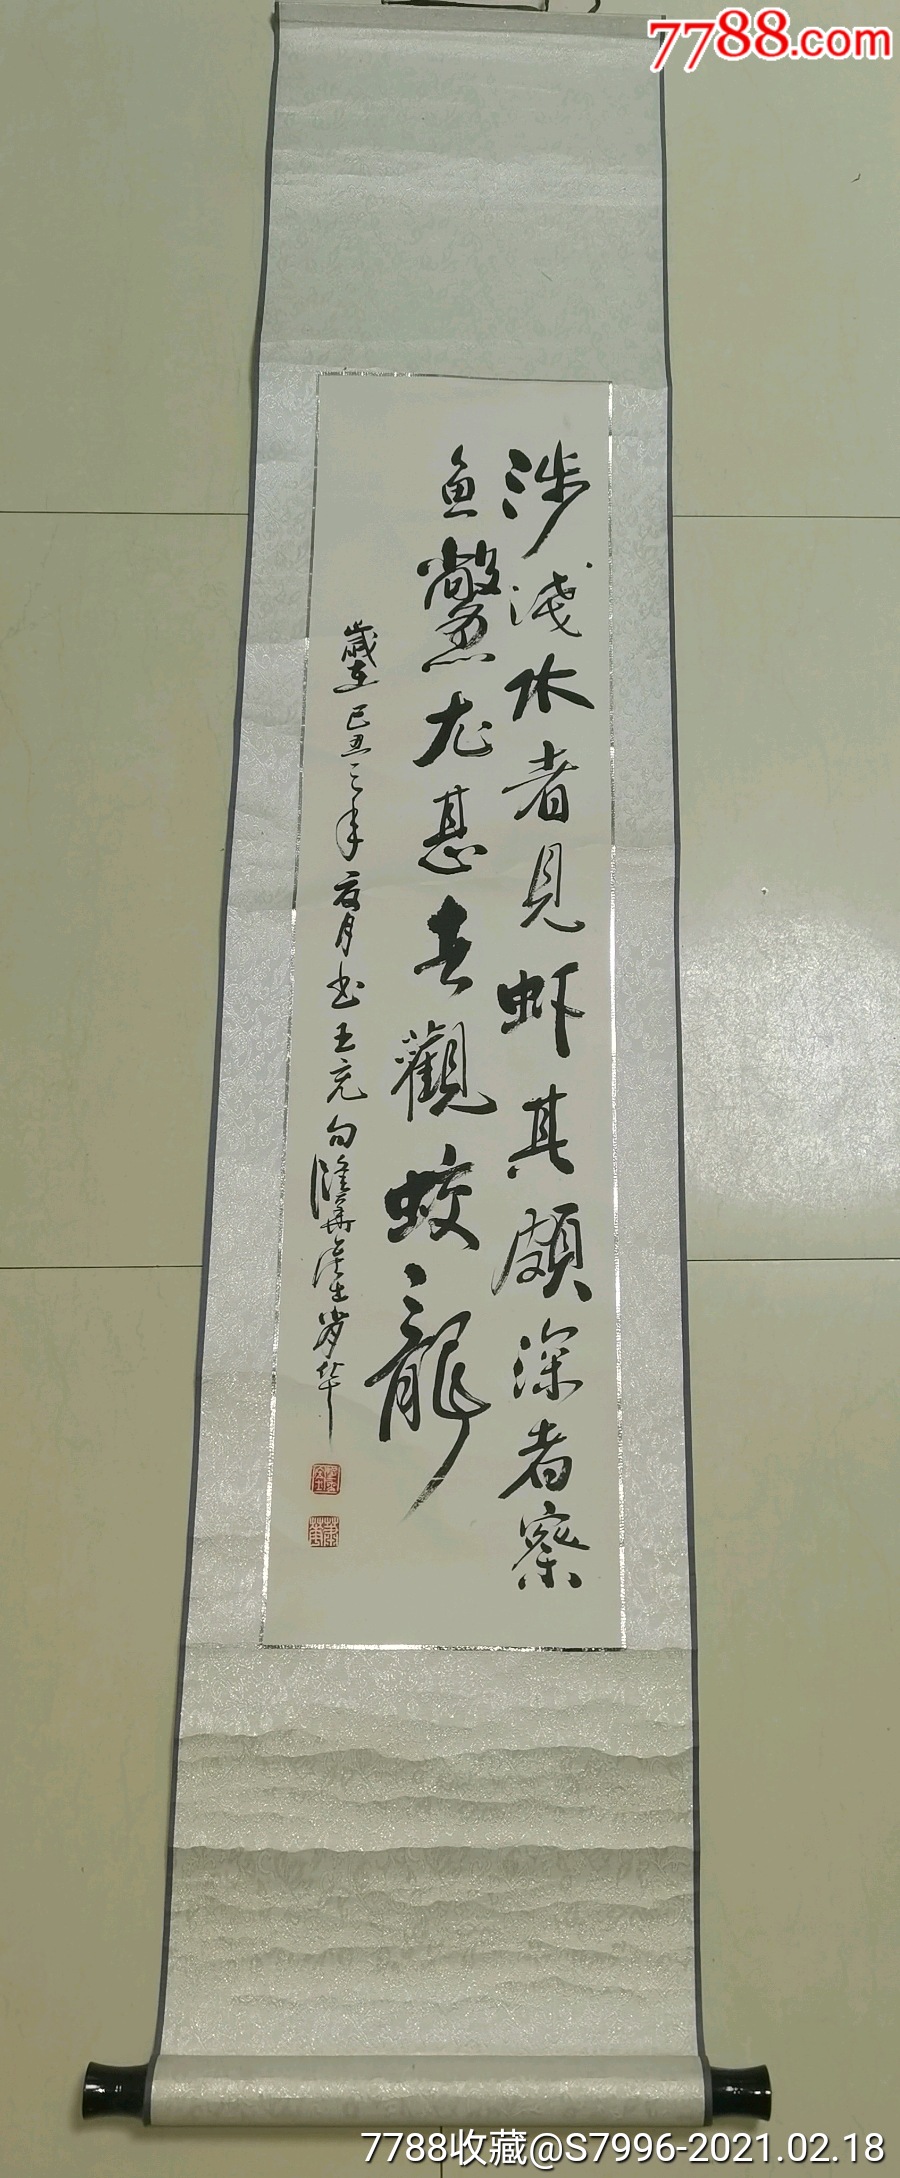 7788.com
涉淺水者見虾其頗深者察
鱼鱉尤甚者觀蛟龍
歲在己丑之年夏月书王充句
7788收藏@S7996-2021.02.18